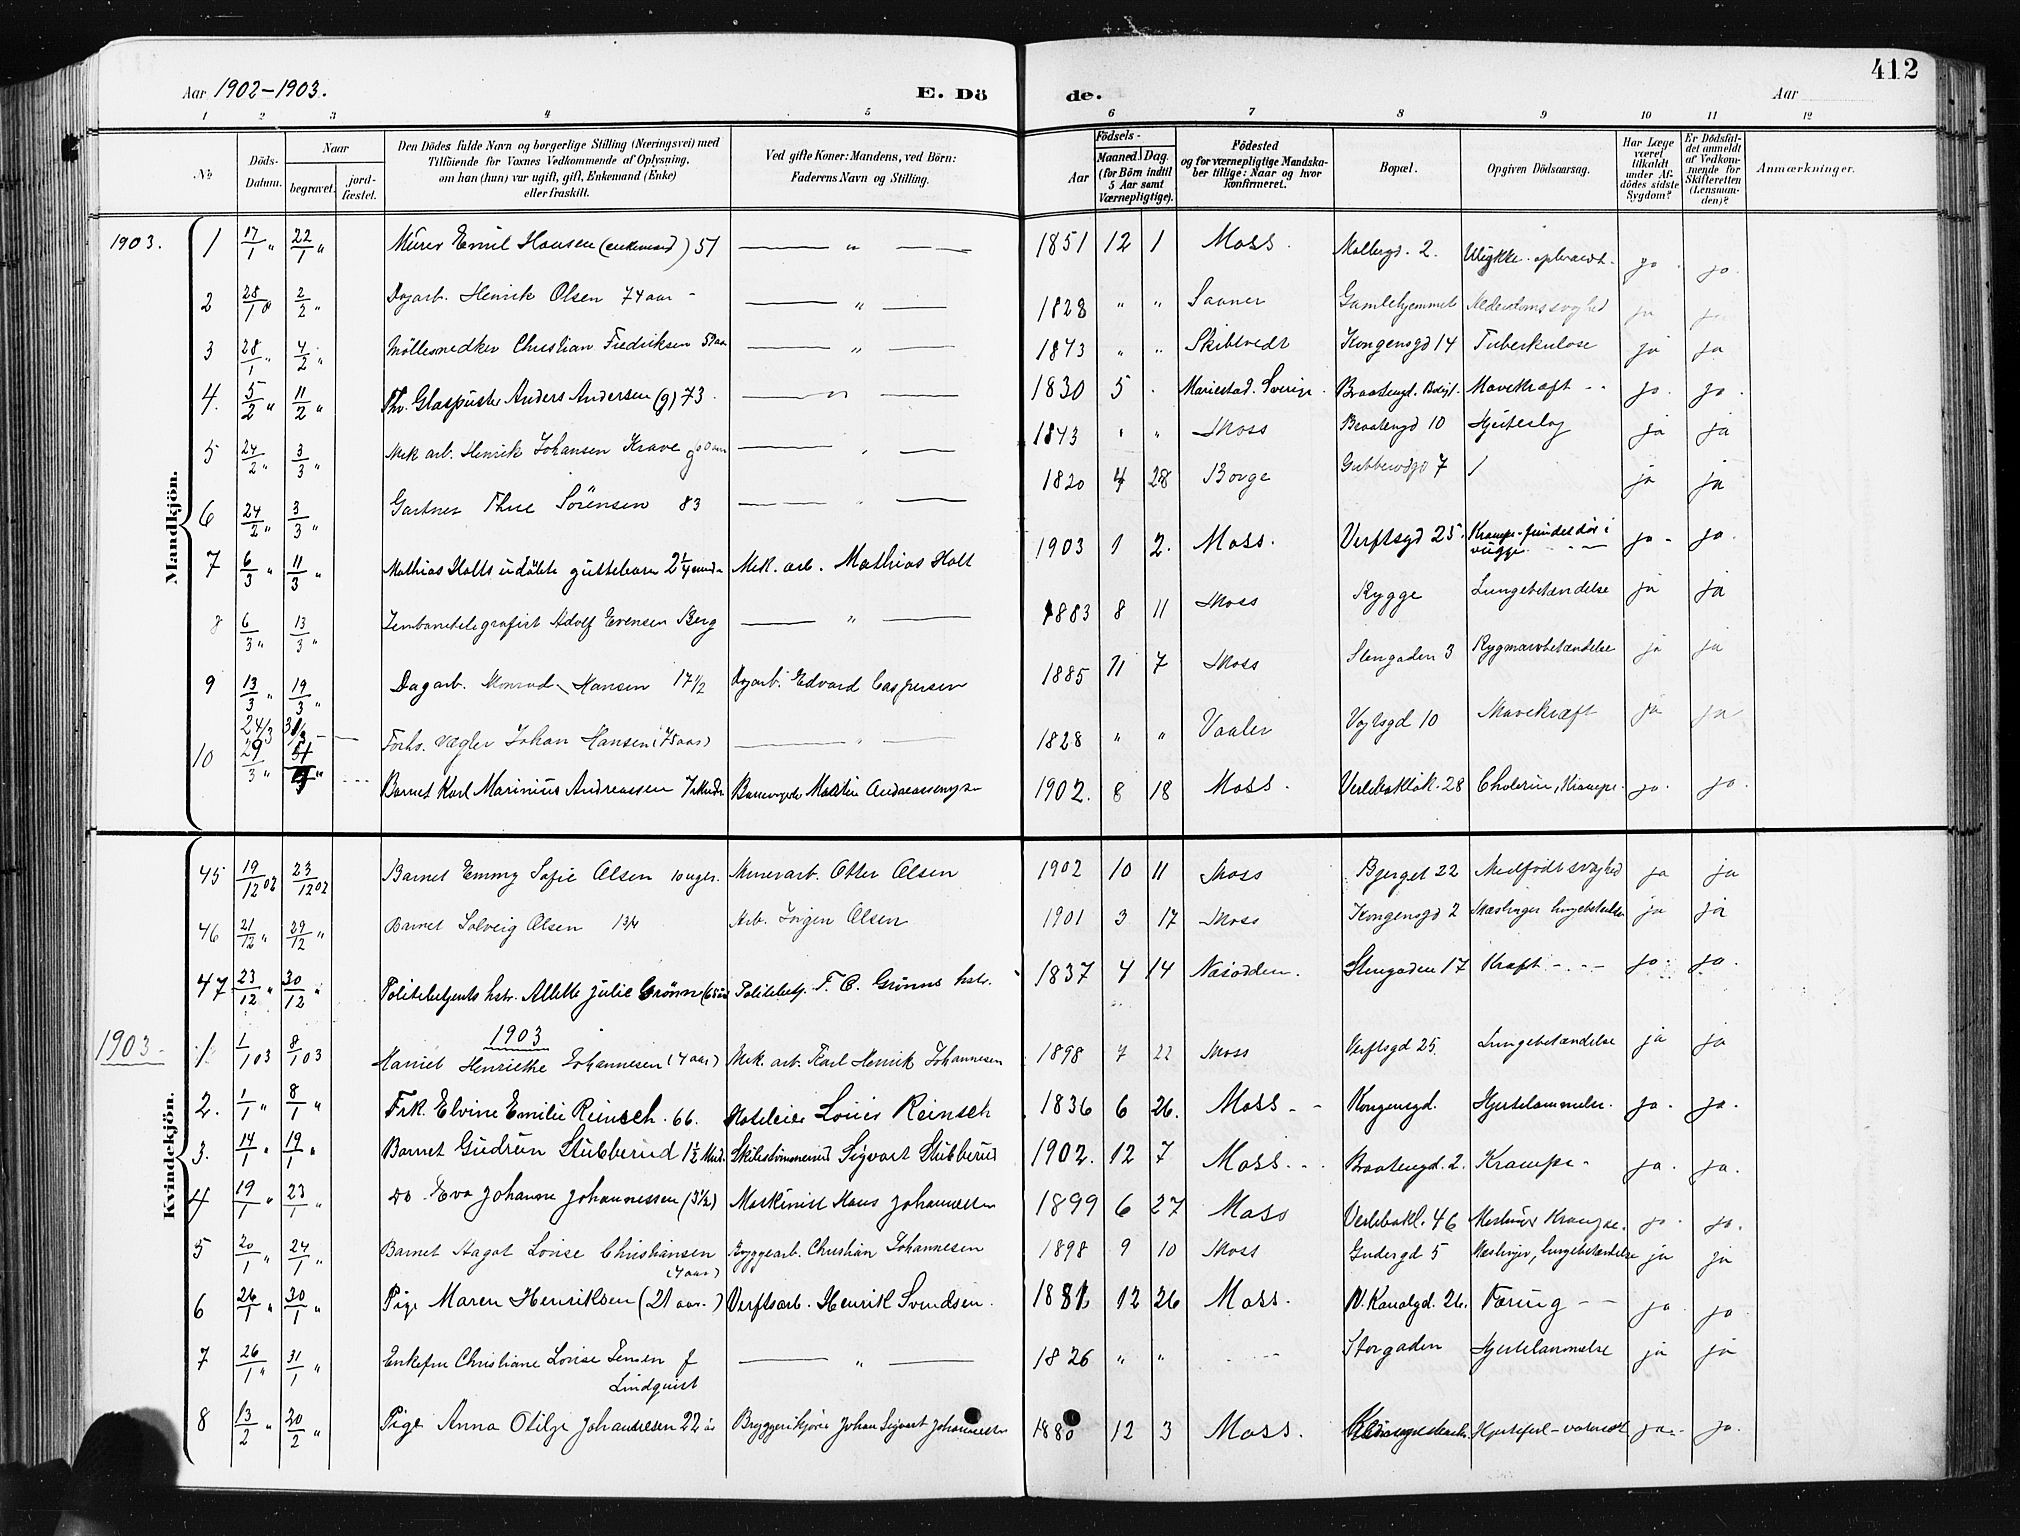 412
Aar 1902-1903.
E. Dö
de.
Aar
1 2 3 4 5 6 7 8 9 10 11 12
No
Döds-Datum.
Naar
begravet.
jord-fæstet.
Den Dödes fulde Navn og borgerlige Stilling (Næringsvei) med
Tilföiende for Voxnes Vedkommende af Oplysning,
om han (hun) var ugift, gift, Enkemand (Enke)
eller fraskilt.
Ved gifte Koner: Mandens, ved Börn:
Faderens Navn og Stilling.
Födsels-
Aar
Maaned. Dag.
(for Börn indtil
5 Aar samt
Værnepligtige).
Födested
og for værnepligtige Mandska-
ber tillige: Naar og hvor
konfirmeret.
Bopæl.
Opgiven Dödsaarsag.
Har Læge
været
tilkaldt
under Af-
dödes sidste
Sygdom?
Er Dödsfal-
det anmeldt
af Vedkom-
mende for
Skifteretten
(Lensman-
den)?
Anmærkninger.
Mandkjön.
1903. 1 17/1 " 22/1 " Murer Emil Hansen (enkemand) 51 — " — 1851 12 1 Moss. 2. Ulykke ja. ja.
2 28/1 2/2 " Dagarb. Henrik Olsen 74 aar — " — 1828 " " Saaner Gamlehjemmet ja ja
3 28/1 " 4/2 " Möllesnedker Christian Fredriksen — " — 1843 " " Skibtvedt Kongensgd 14 Tuberkulose ja ja
4. 5/2 " 11/2 " Glaspuster Anders Andersen (g) 73. — " — 1830 5 Mariestad. Sverige. Mavekræft ja. ja.
5 24/2 " 3/3 " Mek arb. Henrik Johansen Krave — " — 1843 " " Moss Braatengd 10 Hjerteslag ja ja
6 24/2 " 3/3 " Gartner Thue Sörensen 83 — " — 1820 4 28 Borge 7 / ja ja
7 6/3 " 11/3 " Mathias Holts udöbte guttebarn 2 1/4 Mek. arb. Mathias Holt 1903 1 2. Moss. Verftsgd 25. Krampe - fundet död i vugge ja. ja.
8 6/3 " 13/3 " Jernbanetelegrafist Adolf Evensen Berg — " — 1883 8 11 Moss Rygge Lungebetændelse ja ja
9 13/3 " 19/3 " Dagarb. Konrad Hansen 17 1/2 Dagarb. Edvard Caspersen 1885 11 7 Moss Stengaden 3 Rygmarvbetændelse ja ja
24/3 31/3 — Forhv. vægter Johan Hansen (75 aar) — " — 1828 " " Vaaler Vogtsgd 10 Mavekræft ja ja
10 29/3 " Barnet Karl Marinius Andreassen 1902. 8 18 Moss. 28 Cholerine, Krampe. ja. ja.
Kvindekjön.
45 19/12 02 23/12 02 Barnet Emmy Sofie Olsen 10 uger. Murerarb. Otter Olsen 1902 10 11 Moss Bjerget 22 Medfödt svaghed ja ja
46 21/12 " 29/12 " Barnet Solveig Olsen 1 3/4 Arb. Jörgen Olsen 1901 3 17 Moss Kongensgd 2 Mæslinger ja ja
47 23/12 " 30/12 " Politibetjents hstr. Allette Julie Grönn Politibetj. F. C. Grönns hstr. 1837 4 14 Næsodden. Stengaden 17 Kræft ja. ja.
1903
1903. 1 1/1 03 8/1 03 Harriet Henriette Johannesen (4 aar) Mek. arb. Karl Henrik Johannesen 1898 7 22 Moss Verftsgd 25. Lungebetændelse ja ja
2. 1/1 " 8/1 " Frk. Elvine Emilie Reinsch. 66. Hoteleier Louis Reinsch 1836 6 26. Moss. Kongensgd. Hjertelammelse. ja. ja.
3. 14/1 " 19/1 " Barnet Gudrun Stubberud 1 1/2 Mnd. Skibstömmermd Sigvart Stubberud 1902. 12 7 Moss. Braatengd. 2. Krampe ja. ja.
4 19/1 " 23/1 " Do. Eva Johanne Johannessen (3 1/2) Maskinist Hans Johannessen 1899 6 27 Moss 46 Krampe. ja. ja.
5 20/1 " 24/1 " Barnet Hagot Lovise Christiansen (4 aar) Byggearb. Christian Johannesen 1898 9 10 Moss 5 Mæslinger, lungebetændelse ja ja
6 26/1 " 30/1 " Pige Maren Henriksen (21 aar.) Verftsarb. Henrik Svendsen. 1881 12 26 Moss. N. Kanalgd. 26. Tæring ja. ja.
7 26/1 " 31/1 " Enkefru Christiane Lovise Jensen f Lindquist — " — 1826 " " Storgaden Hjertelammelse ja ja
8 13/2 " 20/2 " Pige Anna Otilje Johannesen 22 Bryggerikjörer Johan Sigvart Johannessen 1880 12 3 Moss. Hjertefeil ja. ja.